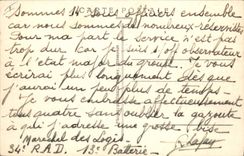 CARTE POSTALE
sommes 11 officiers ensemble
car nous sommes de nombreux réservistes
Pour ma part le service n'est pas
trop dur car je suis s. off observateur
à l'état major du groupe. Je vous
écrirai plus longuement dès que
j'aurai un peu plus de temps
Je vous embrasse affectueusement
tous quatre sans oublier la
à qui j'adresse une grosse bise
Maréchal des Logis
34e R.A.D. 13e Batterie